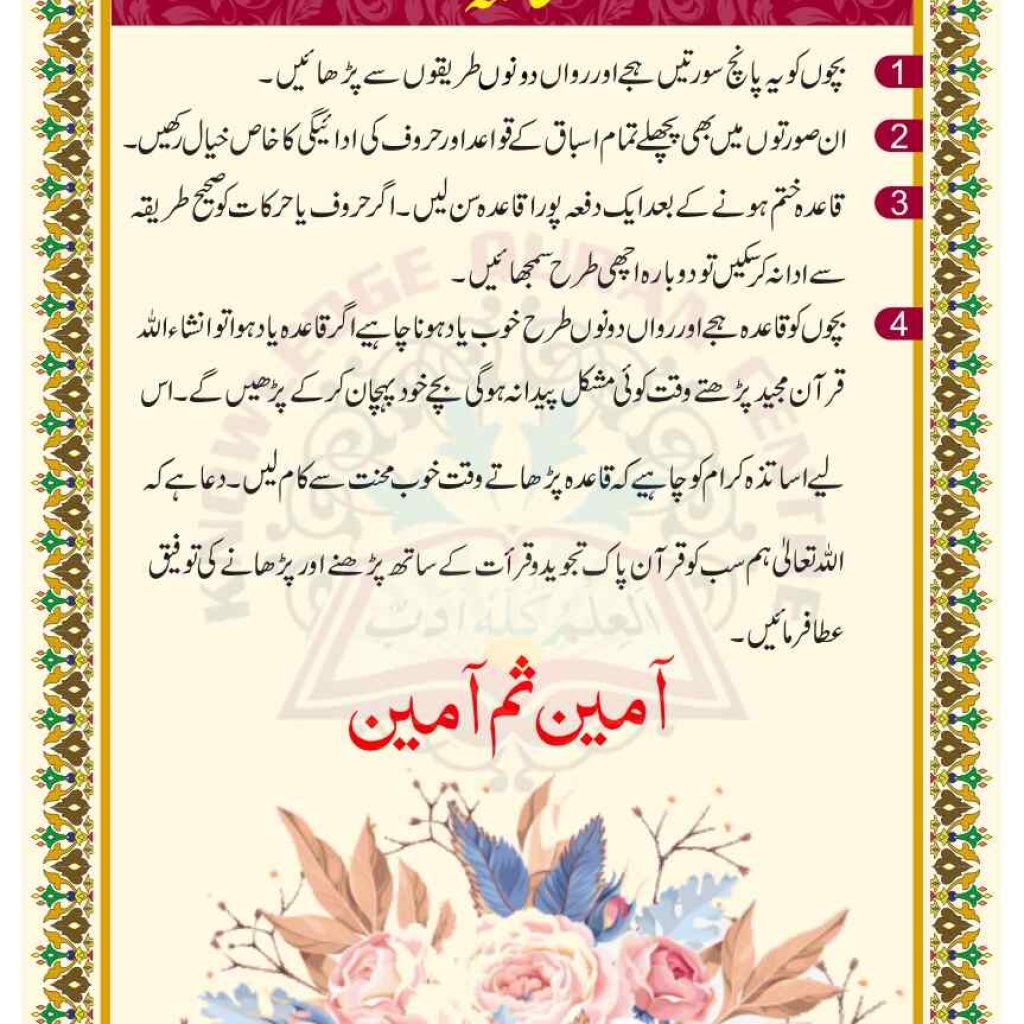 1 بچوں کو یہ پانچ سورتیں ہجے اور رواں دونوں طریقوں سے پڑھائیں۔
2 ان صورتوں میں بھی پچھلے تمام اسباق کے قواعد اور حروف کی ادائیگی کا خاص خیال رکھیں۔
3 قاعدہ ختم ہونے کے بعد ایک دفعہ پورا قاعدہ سن لیں۔ اگر حروف یا حرکات کو صحیح طریقہ
سے ادا نہ کر سکیں تو دوبارہ اچھی طرح سمجھائیں۔
4 بچوں کو قاعدہ ہجے اور رواں دونوں طرح خوب یاد ہونا چاہیے اگر قاعدہ یاد ہوا تو انشاء اللہ
قرآن مجید پڑھتے وقت کوئی مشکل پیدا نہ ہوگی بچے خود پہچان کر کے پڑھیں گے۔ اس
لیے اساتذہ کرام کو چاہیے کہ قاعدہ پڑھاتے وقت خوب محنت سے کام لیں۔ دعا ہے کہ
اللہ تعالیٰ ہم سب کو قرآن پاک تجوید و قرأت کے ساتھ پڑھنے اور پڑھانے کی توفیق
عطا فرمائیں۔
آمین ثم آمین
العلم کله ادب